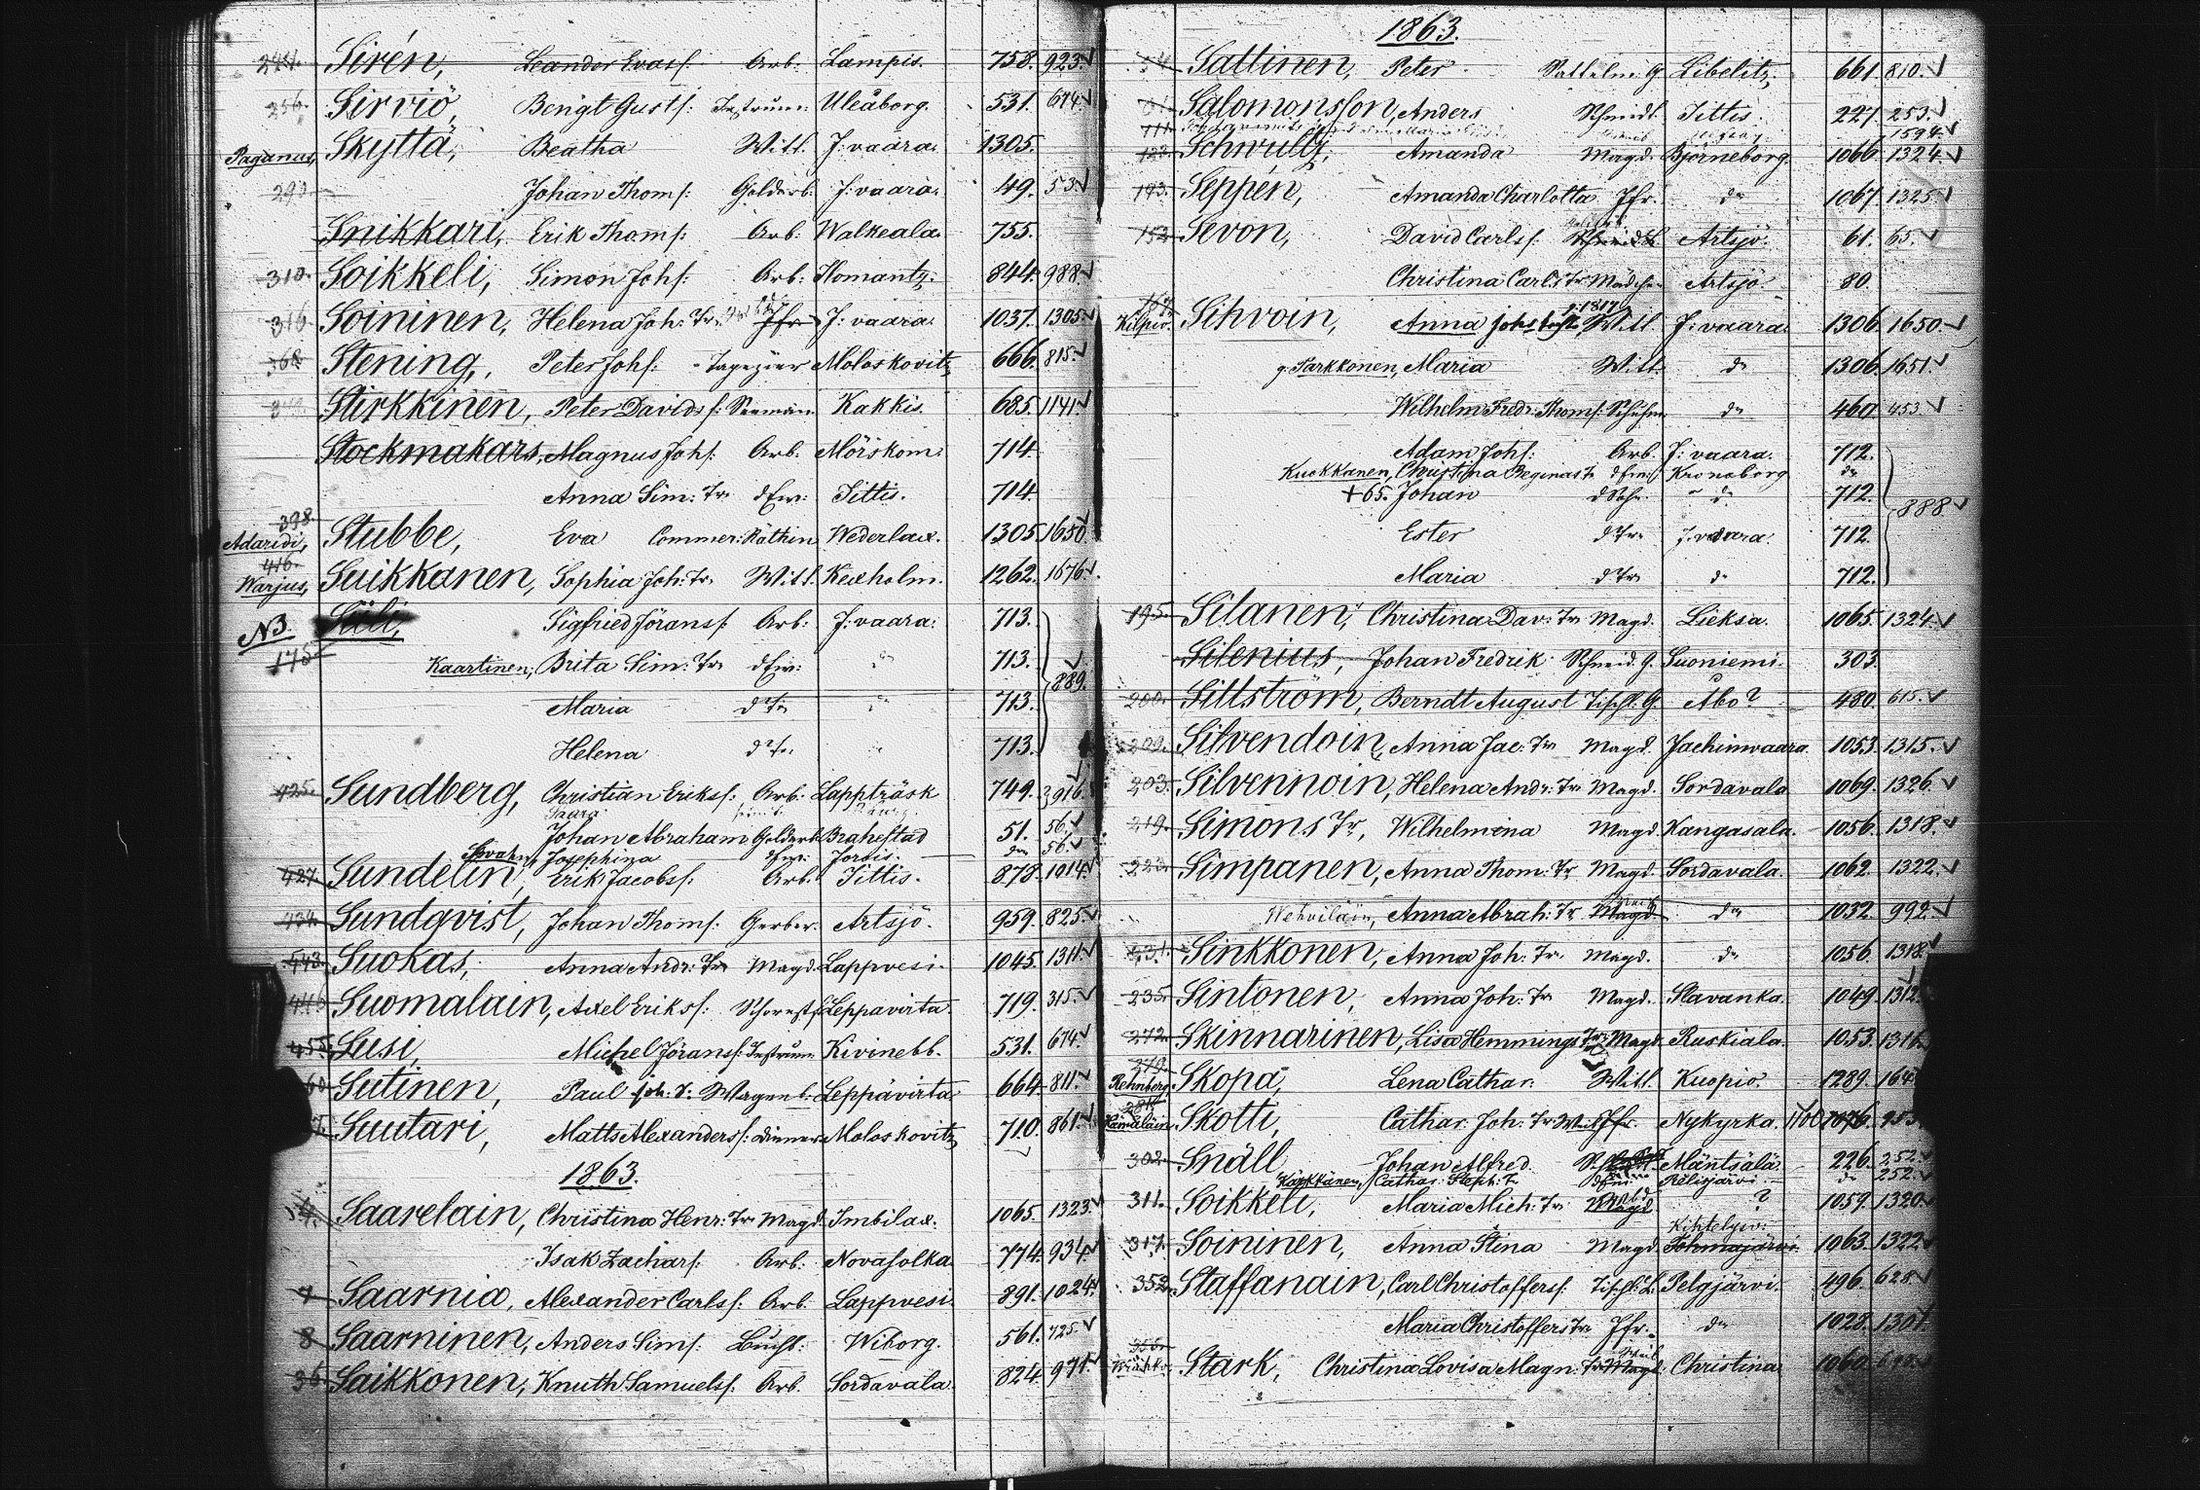 244. Sirén, Leander Evasf. Arb. Lampis. 758. 923. √
256. Sirviö, Bengt Gustf: Instrum: Uleåborg. 531. 674. √
Paganus, Skyttä, Beatha Witt. J:vaara. 1305.
290. Johan Thomf: Goldarb: J:vaara. 49. 53. √
Snikkari, Erik Thomf: Arb. Walkeala. 755.
310. Soikkeli, Simon Johf: Arb: Ilomantz. 844. 988. √
316. Soininen, Helena Joh: Tr. Jfr J:vaara. 1037. 1305. √
368. Stening, Peter Johf: Tapezier Moloskovitz 666. 815. √
Stirkkinen, Peter Davidsf: Seemän. Kakkis. 685. 1141 √
Stockmakars, Magnus Johf. Arb. Mörskom. 714.
Anna Sim: Tr. dEw: Jittis. 714.
398.
Adaridi, Stubbe, Eva Commer: Räthin Wederlax. 1305. 1650. √
416.
Warjus, Suikkanen, Sophia Joh: Tr. Witt. Kexholm. 1262. 1676. √
N3. Süli, Sigfried Göransf. Arb: J:vaara: 713.
175 Kaartinen, Brita Sim: Tr. dEw: " 713. 889. √
Maria dTr " 713.
Helena dTr. " 713.
425. Sundberg, Christian Eriksf: Arb. Lappträsk 749. 916. √
Johan Abraham Goldarb. Brahestad 51. 56. √
Josephina dEw: Jorois. do 56. √
427. Sundelin, Erik Jacobsf: Arb. Jittis. 878. 1014 √
434. Sundqvist, Johan Thomf: Gerber. Artsjö. 959. 825. √
443. Suokas, Anna Andr: Tr Magd. Lappvesi. 1045. 1311. √
446 Suomalain, Axel Eriksf: Schornstf. Leppävirta. 719. 315. √
455. Susi, Michel Göransf: Instrum Kivinebb. 531. 674. √
60. Sutinen, Paul Joh: S: Wagenb. Leppävirta 664. 811. √
Suutari, Matts Alexandersf: Diener Moloskovitz 710. 861. √
1863.
Saarelain, Christina Henr: Tr. Magd. Imbilax. 1065. 1323. √
Isak Zacharf: Arb: Novasolka. 774. 934. √
7 Saarnia, Alexander Carlsf: Arb. Lappvesi. 891. 1024. √
8 Saarninen, Anders Simf: Buchb. Wiborg. 561. 725. √
36 Saikkonen, Knuth Samuelsf: Arb. Sordavala. 824. 971. √
1863.
Sallinen, Peter Sattelm. G. Libelitz, 661. 810. √
Salomonsson, Anders Schmidt. Jittis. 227. 253. √
1594. √
Schwultz, Amanda Magd. Björneborg. 1066. 1324. √
193. Seppén, Amanda Charlotta Jfr. do 1067. 1325. √
152. Sevon, David Carlsf. Artsjö. 61. 65. √
Christina Carls Tr Mädchen Artsjö 80.
Kilpiö. Sihvoin, Anna Johs tocht g. 1817 Witt. J:vaara. 1306. 1650. √
g. Parkkonen, Maria Witt. do 1306. 1651. √
Wilhelm Fredr. Thomf. Schuhm. do 460. 453. √
Adam Johf. Arb. J:vaara. 712.
Kuokkanen, Christina Reginas T. dEw: Kronoborg do
+65. Johan dSohn. do 712. 888 √
Ester dTr. J:vaara. 712.
Maria dTr do 712.
195. Silanen, Christina Dav: Tr. Magd. Lieksa. 1065. 1324. √
Silenius, Johan Fredrik Schneid. G. Suoniemi. 303.
200. Sillström, Berndt August Tischl. G. Åbo? 480. 615. √
202. Silvendoin, Anna Jac: Tr. Magd. Jachimvaara. 1053. 1315. √
203. Silvennoin, Helena Andr: Tr. Magd. Sordavala 1069. 1326. √
219. Simons Tr, Wilhelmina Magd. Kangasala. 1056. 1318. √
223. Simpanen, Anna Thom: Tr. Magd. Sordavala. 1062. 1322. √
Wehviläin, Anna Abrah: Tr. Magd. do 1032. 992. √
231. Sinkkonen, Anna Joh: Tr. Magd. do 1056. 1318. √
235. Sintonen, Anna Joh: Tr. Magd. Slavanka. 1049. 1312. √
272. Skinnarinen, Lisa Hemmings Tr. Magd. Ruskiala. 1053. 1316.
279.
Rehnberg, Skopa, Lena Cathar. Witt. Kuopio. 1289.
Hämäläin, Skotti, Cathar. Joh: Tr. Jfr. Nykyrka. 1100 1076.
302. Snäll Johan Alfred Mäntsälä 226. 252. √
Kärkkänen, Cathar. Steph: T. dEw: Pelisjärvi do 252. √
311. Soikkeli, Maria Mich: Tr. Magd ? 1059. 1320. √
317. Soininen, Anna Stina Magd. Kihtelysv: Tohmajärvi. 1063. 1322 √
352. Staffanain, Carl Christoffersf: Tischl. L. Pelgjärvi. 496. 628. √
Maria Christoffers Tr. Jfr. do 1028. 1301. √
355.
Stark, Christina Lovisa Magn: Tr. Magd. Christina 1060.